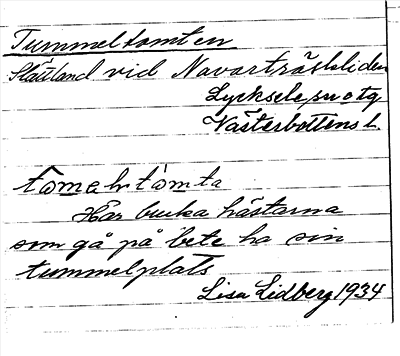 Tummeltomten
Slåttland vid Navarträskliden
Lycksele sn o tg
Västerbottens l.
tômeltòmta
Här bruka hästarna
som gå på bete ha sin
tummelplats
Lisa Lidberg 1934